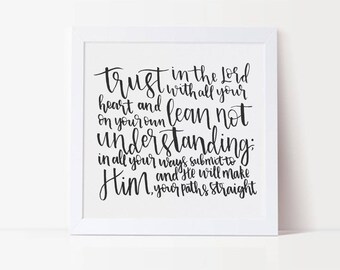 trust in the Lord
with all your
heart and
on your own lean not
understanding;
in all your ways submit to
Him, and He will make
your paths straight